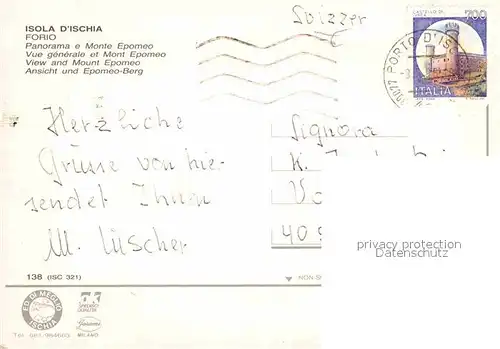 ISOLA D'ISCHIA
FORIO
Panorama e Monte Epomeo
Vue générale et Mont Epomeo
View and Mount Epomeo
Ansicht und Epomeo-Berg
Svizzer
700
PORTO D'IS
ITALIA
Herzliche
Grüsse von hie-
sendet Ihnen
M. Lüscher
Signora
K.
40
privacy protection
Datenschutz
138 (ISC 321)
NON S
ED. DI MEGLIO
ISCHIA
MILANO